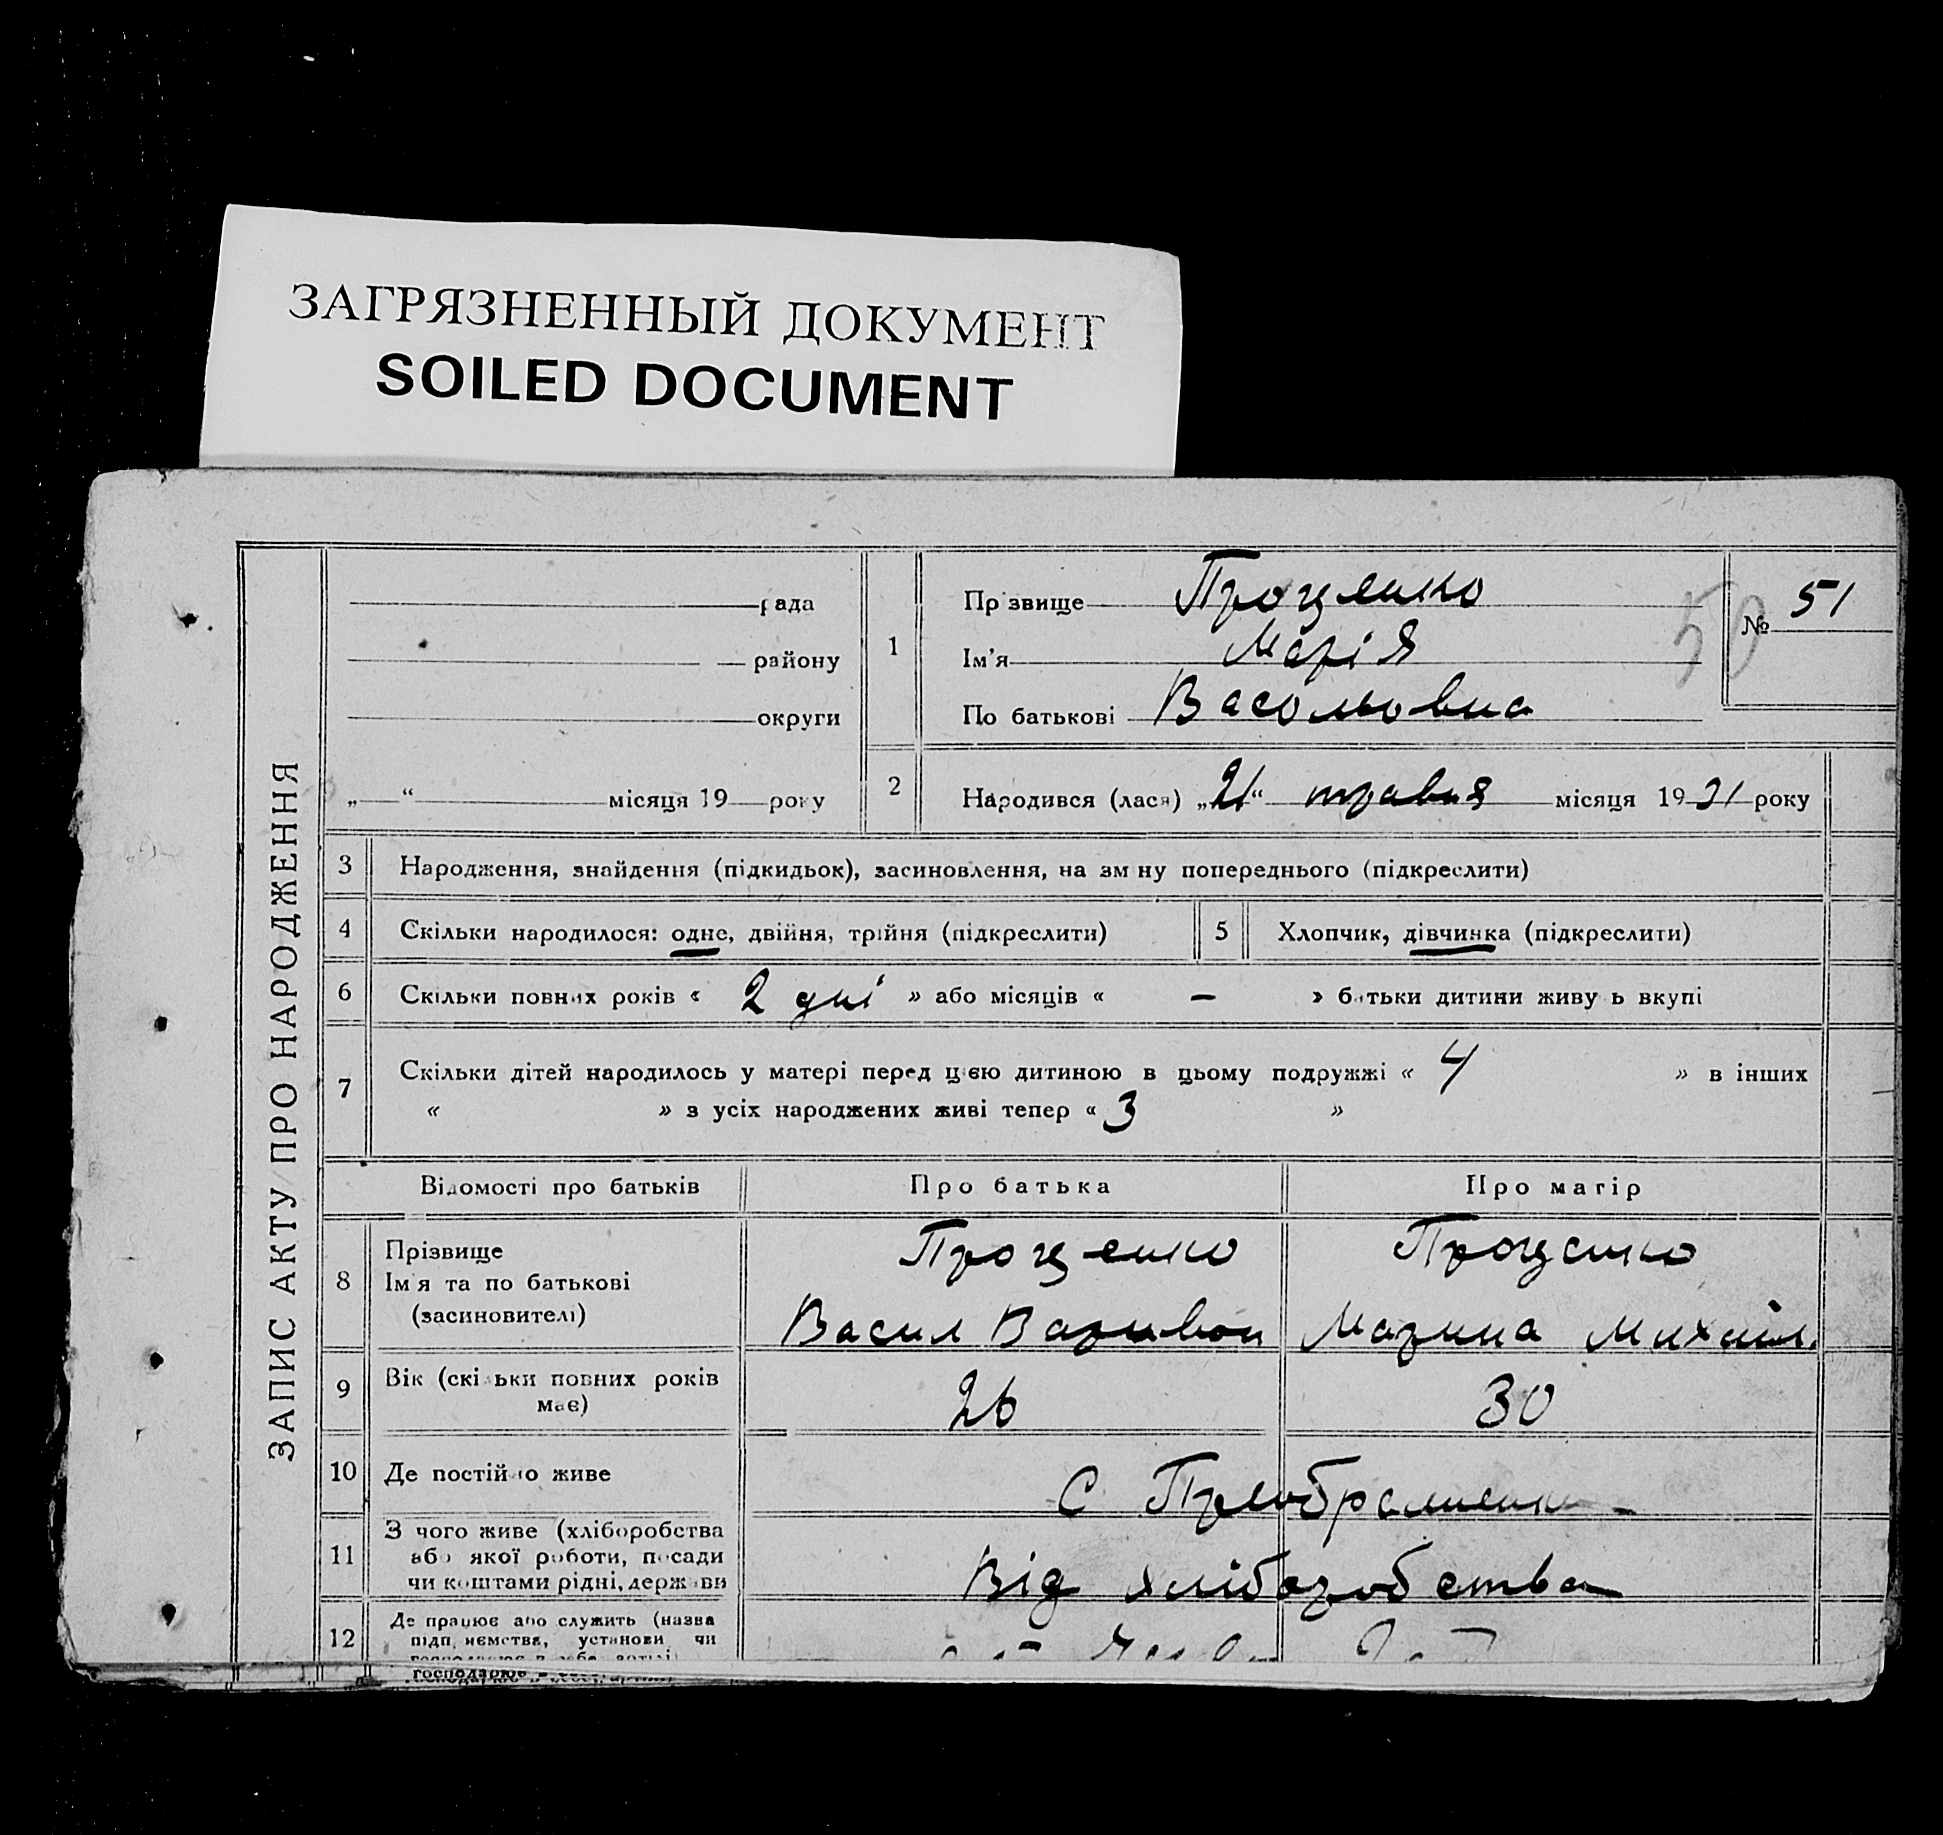 ЗАГРЯЗНЕННЫЙ ДОКУМЕНТ
SOILED DOCUMENT
ЗАПИС АКТУ ПРО НАРОДЖЕННЯ
рада
району
округи
„ “ місяця 19 року
1
Прізвище Проценко
Ім'я Марія
По батькові Васольовна
№ 51
50
2
Народився (лася) „21“ травня місяця 1931 року
3 Народження, знайдення (підкидьок), засиновлення, на зміну попереднього (підкреслити)
4 Скільки народилося: одне, двійня, трійня (підкреслити)
5 Хлопчик, дівчинка (підкреслити)
6 Скільки повних років « 2 дні » або місяців « – » батьки дитини живуть вкупі
7 Скільки дітей народилось у матері перед цією дитиною в цьому подружжі « 4 » в інших
« » з усіх народжених живі тепер « 3 »
Відомості про батьків Про батька Про матір
8 Прізвище Проценко Проценко
Ім'я та по батькові
(засиновителі) Васил Варивон Марина Михайл.
9 Вік (скільки повних років
має) 26 30
10 Де постійно живе С
11 З чого живе (хліборобства
або якої роботи, посади
чи коштами рідні, держави
Від хліборобства
12 Де працює або служить (назва
підприємства, установи чи
господарює в